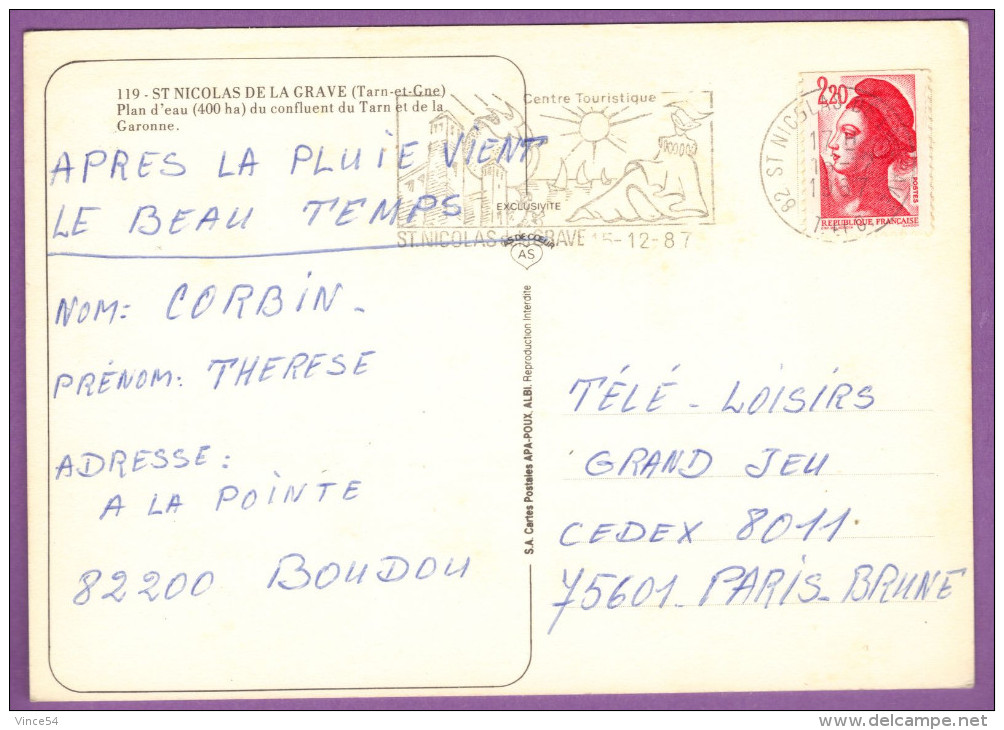 119 - ST NICOLAS DE LA GRAVE (Tarn-et-Gne)
Plan d'eau (400 ha) du confluent du Tarn et de la
Garonne.
APRES LA PLUIE VIENT
LE BEAU TEMPS
NOM: CORBIN.
PRÉNOM: THERESE
ADRESSE:
A LA POINTE
82200 BOUDOU
Centre Touristique
EXCLUSIVITÉ
AS DE COEUR
AS
ST NICOLAS GRAVE 15-12-87
S.A. Cartes Postales APA-POUX, ALBI. Reproduction Interdite
82 ST NICOLAS
2,20
POSTES
REPUBLIQUE FRANÇAISE
TÉLÉ - LOISIRS
GRAND JEU
CEDEX 8011
75601 - PARIS - BRUNE
Vince54
delcampe.net